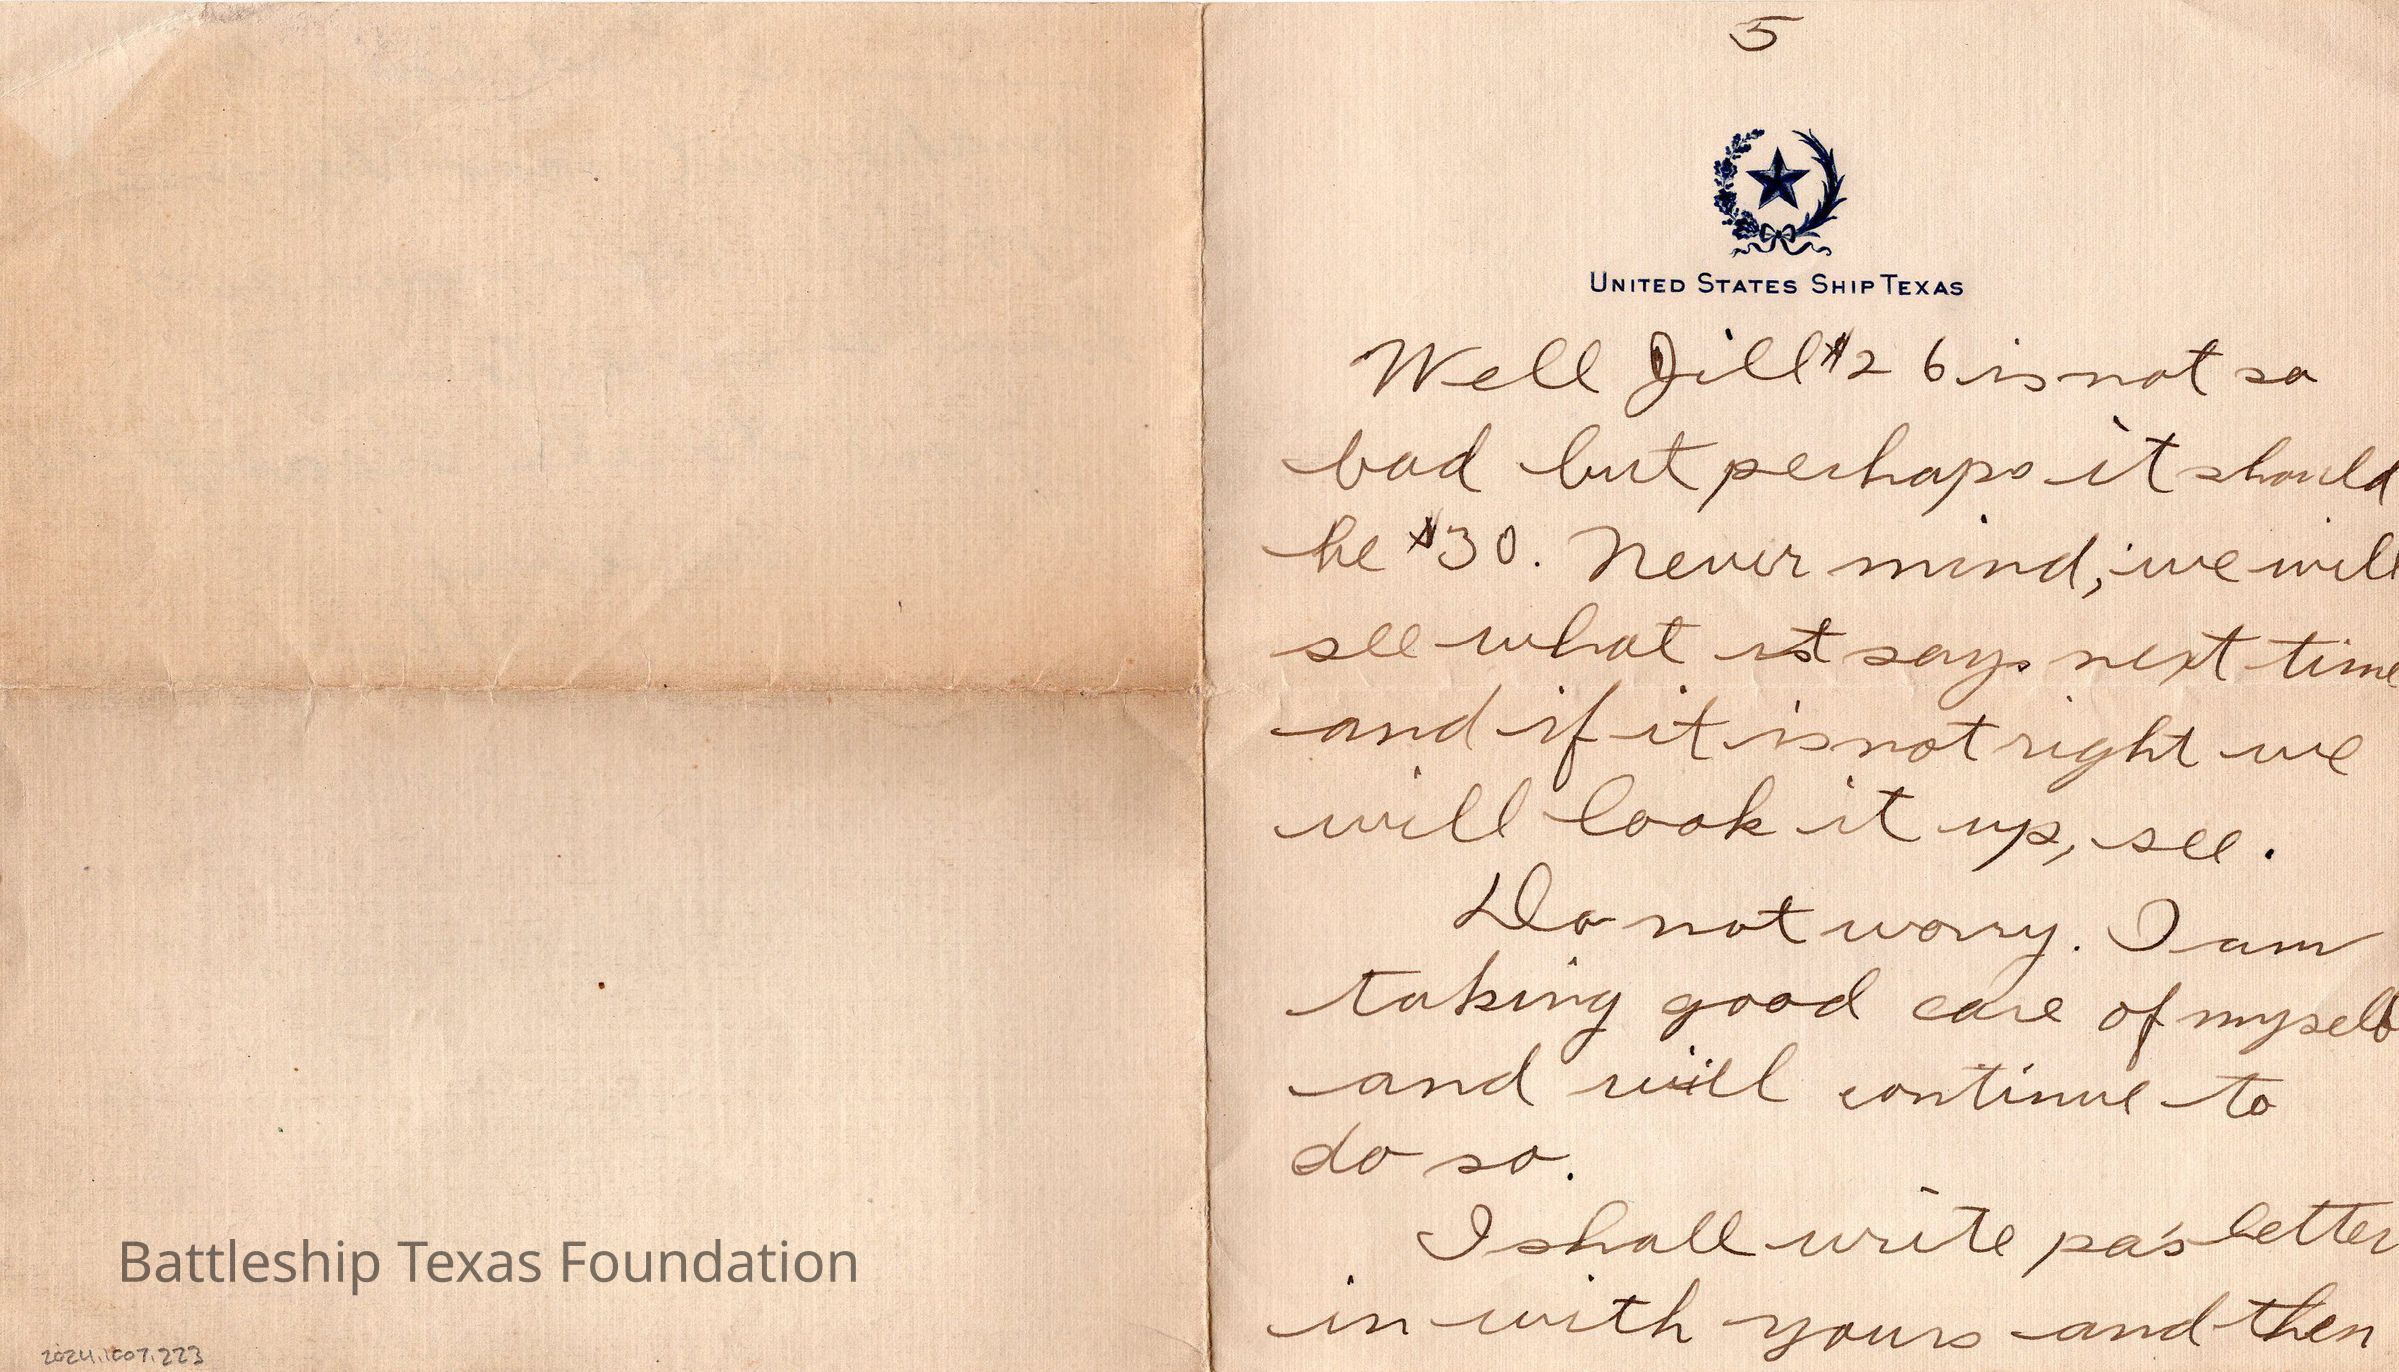 Battleship Texas Foundation
2024.1007.223
5
UNITED STATES SHIP TEXAS
Well Jill $26 is not so
bad but perhaps it should
be $30. Never mind, we will
see what it says next time
and if it is not right we
will look it up, see.
Do not worry. I am
taking good care of myself
and will continue to
do so.
I shall write pa's letter
in with yours and then